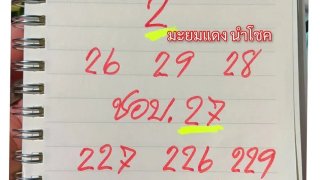 2
มะยมแดง นำโชค
26 29 28
ชอบ. 27
227 226 229